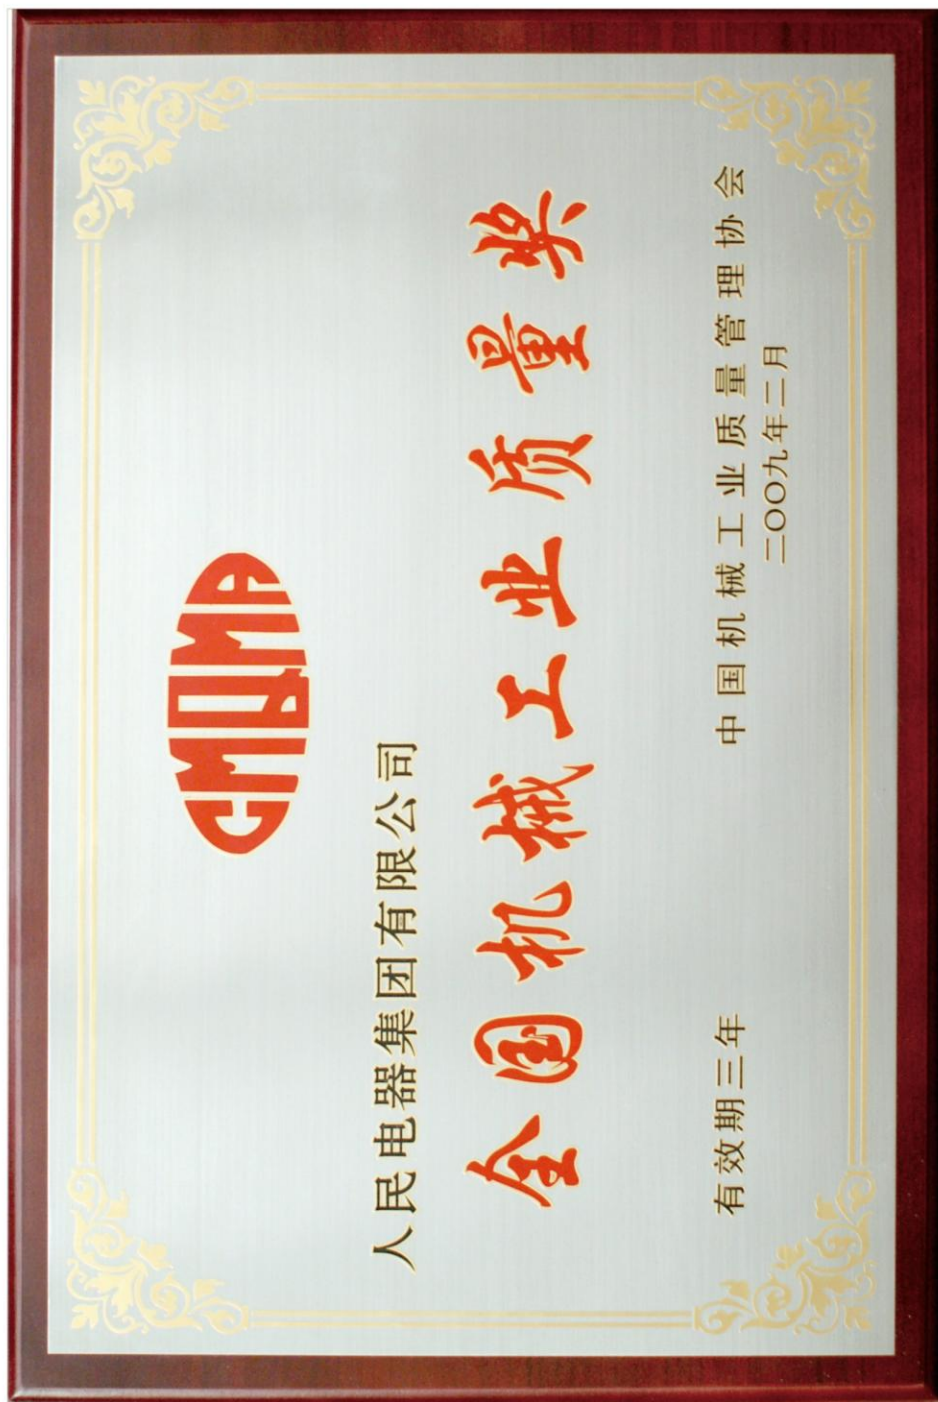 CMQMA
人民电器集团有限公司
全国机械工业质量奖
有效期三年
中国机械工业质量管理协会
二〇〇九年二月